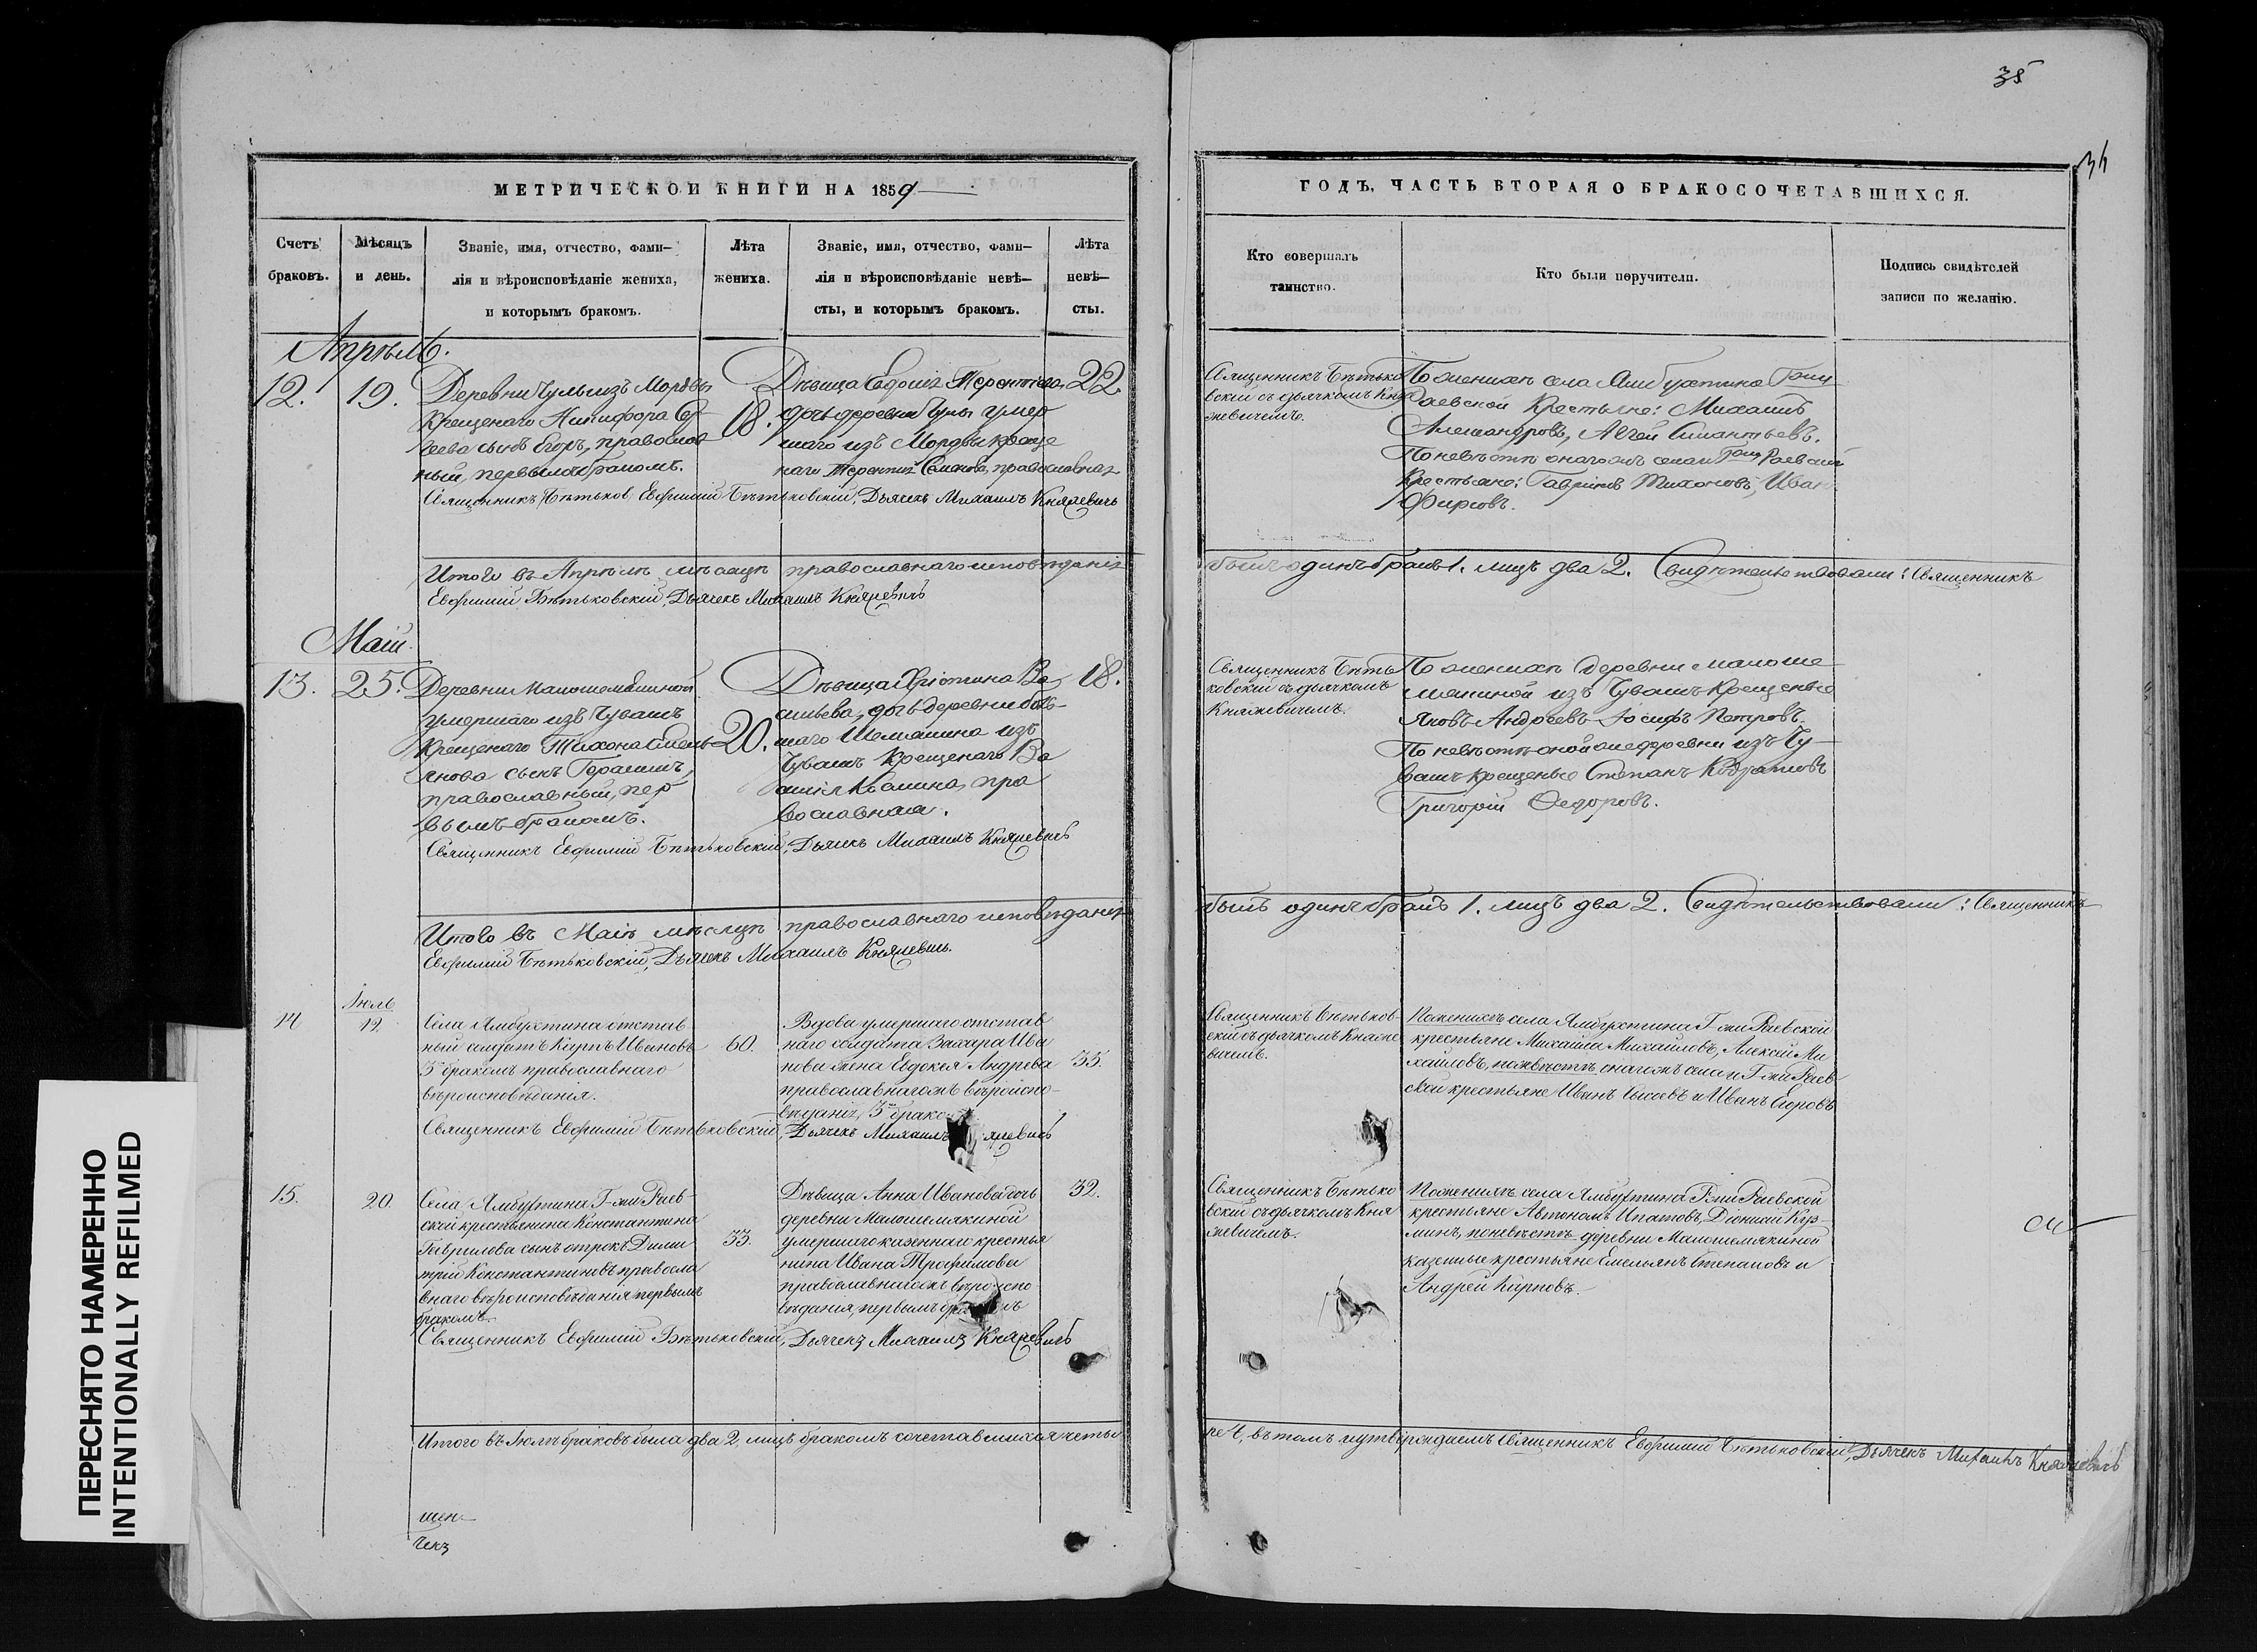 35
34
МЕТРИЧЕСКОЙ КНИГИ НА 1859
ГОДЪ, ЧАСТЬ ВТОРАЯ О БРАКОСОЧЕТАВШИХСЯ.
Счетъ
браковъ.
Мѣсяцъ
и день.
Званіе, имя, отчество, фами-
лія и вѣроисповѣданіе жениха,
и которымъ бракомъ.
Лѣта
жениха.
Званіе, имя, отчество, фами-
лія и вѣроисповѣданіе невѣ-
сты, и которымъ бракомъ.
Лѣта
невѣ-
сты.
Кто совершалъ
таинство.
Кто были поручители.
Подпись свидѣтелей
записи по желанію.
Апрѣль.
12.
19.
Деревни изъ Мордвы
Крещенаго Никифора
сынъ Егоръ, православ
ный, первымъ бракомъ.
18.
Дѣвица Евдокія Терентіева,
дочь деревни умер
шаго изъ Мордвы креще
наго Терентія Семенова, православная
22.
Священникъ Евфимій Бѣтьковскій, Дьячекъ Михаилъ Княжевичь
Священникъ Бѣтько
вскій съ дьячкомъ Кня
жевичемъ.
По женихѣ села Ямбухтина Гжи
Раевской Крестьяне: Михаилъ
Александровъ,
По невѣстѣ онагожъ села и Гжи Раевской
Крестьяне: Гавріилъ Тихоновъ, Иванъ
Фирсовъ.
Итого въ Апрѣлѣ мѣсяцѣ православнаго исповѣданія
былъ одинъ бракъ 1. лицъ два 2. Свидѣтельствовали: Священникъ
Евфимій Бѣтьковскій, Дьячекъ Михаилъ Княжевичь
Маій.
13.
25.
Деревни Малошемякиной
умершаго изъ Чувашъ
Крещенаго Тихона Емель
янова сынъ Герасимъ,
православный, пер
вымъ бракомъ.
20.
Дѣвица Христина Ва
сильева, дочь деревни боль
шаго Шемякина изъ
Чувашъ Крещенаго Ва
силія Косьмина, пра
вославная.
18.
Священникъ Евфимій Бѣтьковскій, Дьячекъ Михаилъ Княжевичь
Священникъ Бѣть
ковскій съ дьячкомъ
Княжевичемъ.
По женихѣ деревни малоше
мякиной изъ Чувашъ Крещеные
Яковъ Андреевъ Іосифъ Петровъ.
По невѣстѣ онойже деревни изъ Чу
вашъ крещеные Степанъ Кодратовъ
Григорій Ѳедоровъ.
Итого въ Маіѣ мѣсяцѣ православнаго исповѣданія
былъ одинъ бракъ 1. лицъ два 2. Свидѣтельствовали: Священникъ
Евфимій Бѣтьковскій, Дьячекъ Михаилъ Княжевичь.
14
Іюль
12.
Села Ямбухтина отстав
ный солдатъ Карпъ Ивановъ
3 бракомъ православнаго
вѣроисповѣданія.
60.
Вдова умершаго отстав
наго солдата Захара Ива
нова жена Евдокея Андрева
православнагожъ вѣроиспо-
вѣданія, 3 брако
35.
Священникъ Евфимій Бѣтьковскій, Дьячекъ Михаилъ яжевичь
Священникъ Бѣтьков-
скій съ дьячкомъ Княже
вичемъ.
Поженихѣ села Ямбухтина Г-жи Раевской
крестьяне Михаила Михайловъ, Алексей Ми
хайловъ, поневѣстѣ онагожъ села и Г-жи Раев
ской крестьяне Иванъ Сысоевъ и Иванъ Егоровъ
15.
20.
Села Ямбухтина Г-жи Раев-
ской крестьянина Константина
Гаврилова сынъ отрокъ Дими
трій Константиновъ правосла
внаго вѣроисповѣданія первымъ
бракомъ.
33.
Дѣвица Анна Иванова дочь
деревни Малошемякиной
умершаго казеннаго крестья
нина Ивана Трофимова
православнагожъ вѣроиспо
вѣданія, первымъ бракомъ
32.
Священникъ Евфимій Бѣтьковскій, Дьячекъ Михаилъ Княжевичь
Священникъ Бѣтько
вскій съ дьячкомъ Кня
жевичемъ.
Поженихѣ села Ямбухтина Г-жи Раевской
крестьяне Автономъ Ипатовъ, Діонисій Куз-
минъ, поневѣстѣ деревни Малошемякиной
казенные крестьяне Емельянъ Степановъ и
Андрей Карповъ.
Итого въ Іюлѣ браковъ была два 2, лицъ бракомъ сочетавшихся четы
ре 4, въ томъ и утверждаемъ Священникъ Евфимій Бѣтьковскій, Дьячекъ Михаилъ Княжевичь
щен
чекъ
ПЕРЕСНЯТО НАМЕРЕННО
INTENTIONALLY REFILMED